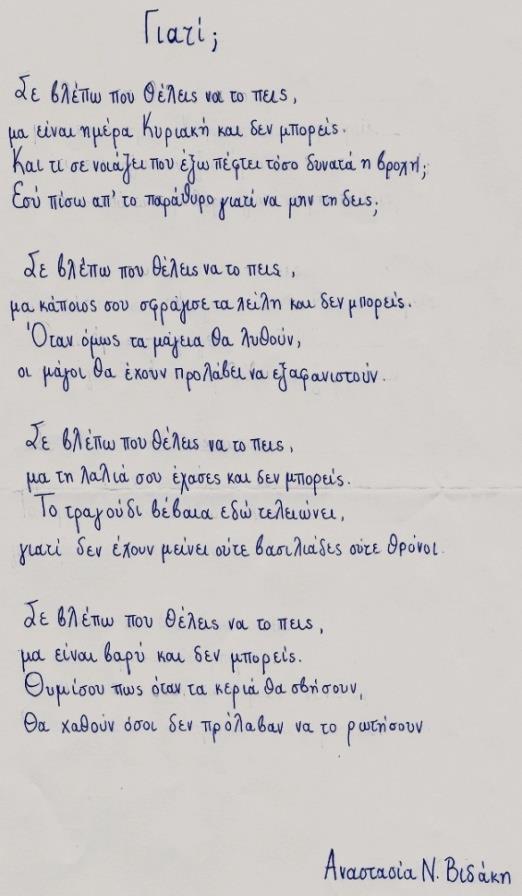 Γιατί;
Σε βλέπω που θέλεις να το πεις,
μα είναι ημέρα Κυριακή και δεν μπορείς.
Και τι σε νοιάζει που έξω πέφτει τόσο δυνατά η βροχή;
Εσύ πίσω απ' το παράθυρο γιατί να μην τη δεις;
Σε βλέπω που θέλεις να το πεις,
μα κάποιος σου σφράγισε τα χείλη και δεν μπορείς.
Όταν όμως τα μάγεια θα λυθούν,
οι μάγοι θα έχουν προλάβει να εξαφανιστούν.
Σε βλέπω που θέλεις να το πεις,
μα τη λαλιά σου έχασες και δεν μπορείς.
Το τραγούδι βέβαια εδώ τελειώνει,
γιατί δεν έχουν μείνει ούτε βασιλιάδες ούτε θρόνοι.
Σε βλέπω που θέλεις να το πεις,
μα είναι βαρύ και δεν μπορείς.
Θυμίσου πως όταν τα κεριά θα σβήσουν,
Θα χαθούν όσοι δεν πρόλαβαν να το ρωτήσουν
Αναστασία Ν. Βιδάκη